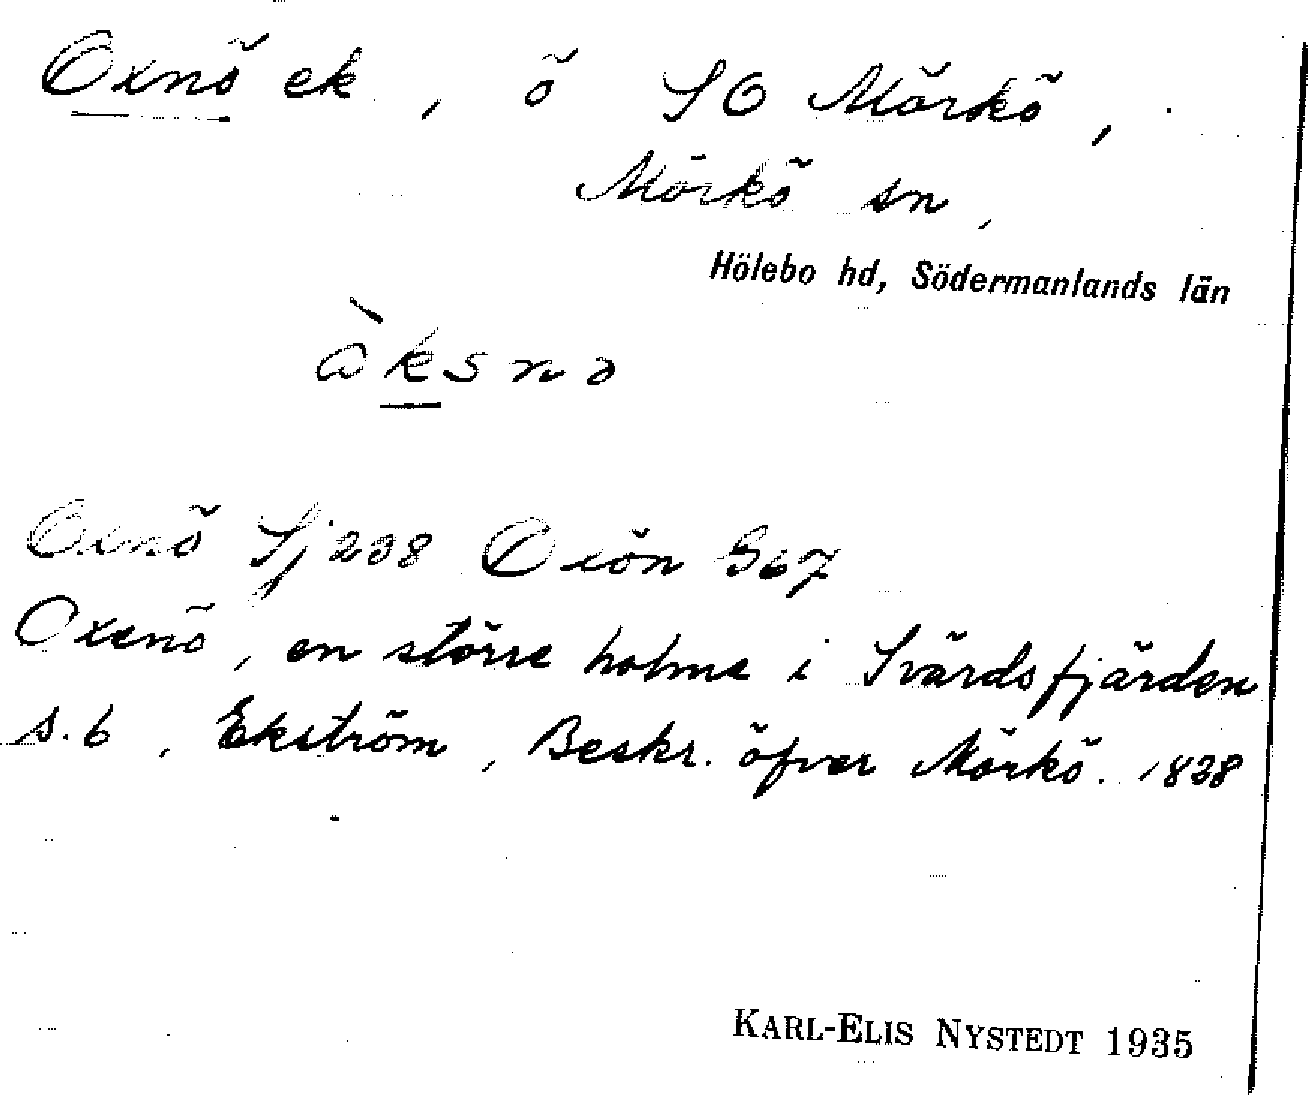 Oxnö ek, ö SO Mörkö,
Mörkö sn,
Hölebo hd, Södermanlands län
àksnə
Oxnö Sj 238 Oxön G67
Oxenö, en större holme i Svärdsfjärden
s. 6, Ekström, Beskr. öfver Mörkö. 1828
KARL-ELIS NYSTEDT 1935